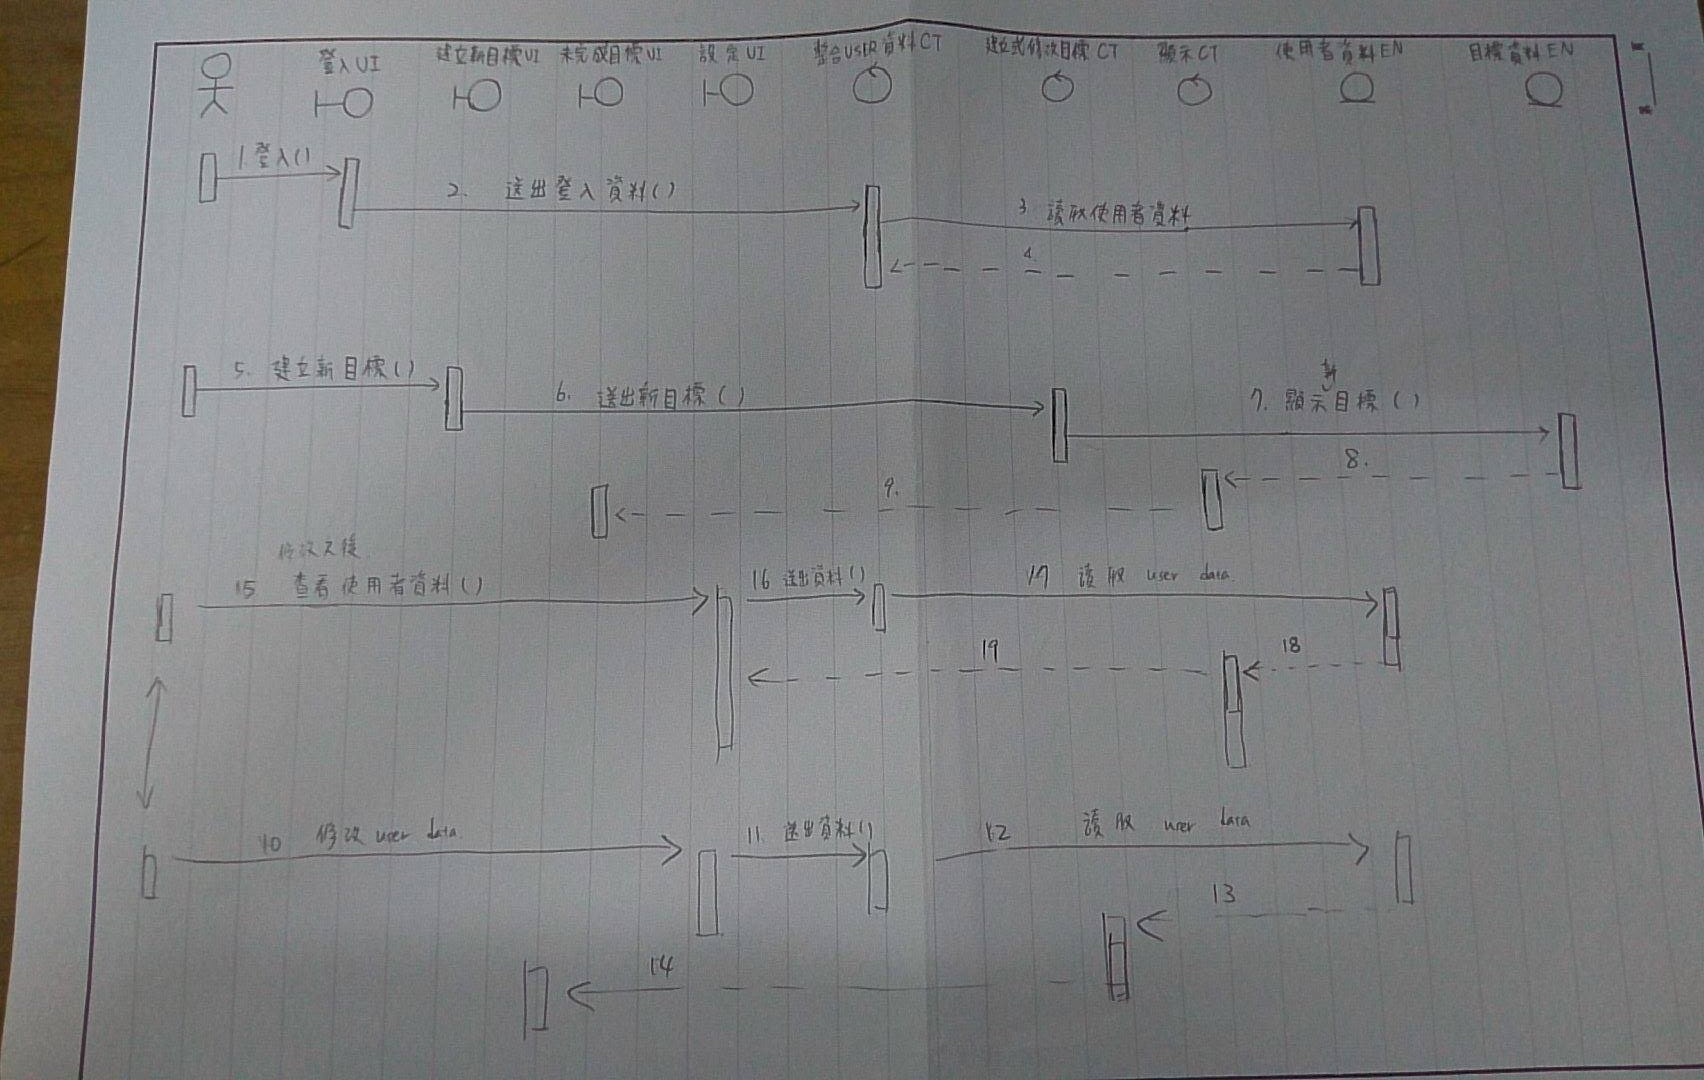 登入UI 建立新目標UI 未完成目標UI 設定UI 整合USER資料CT 建立或修改目標CT 顯示CT 使用者資料EN 目標資料EN
1.登入()
2. 送出登入資料()
3 讀取使用者資料
4.
5. 建立新目標()
6. 送出新目標()
新
7. 顯示目標()
8.
9.
修改之後
15 查看使用者資料()
16 送出資料()
17 讀取 user data.
18
19
10 修改 user data
11. 送出資料()
12 讀取 user data
13
14